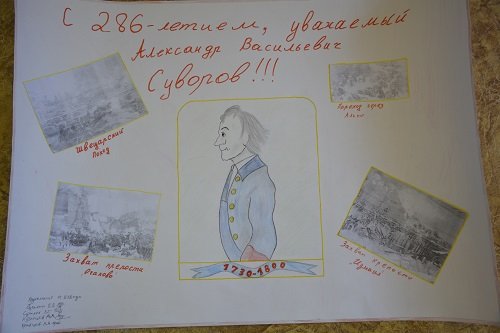 С 286-летием, уважаемый
Александр Васильевич
Суворов!!!
Швецарский
Поход
Переход через
Альпы
Захват крепости
Очаков
Захват крепости
Измаил
1730-1800